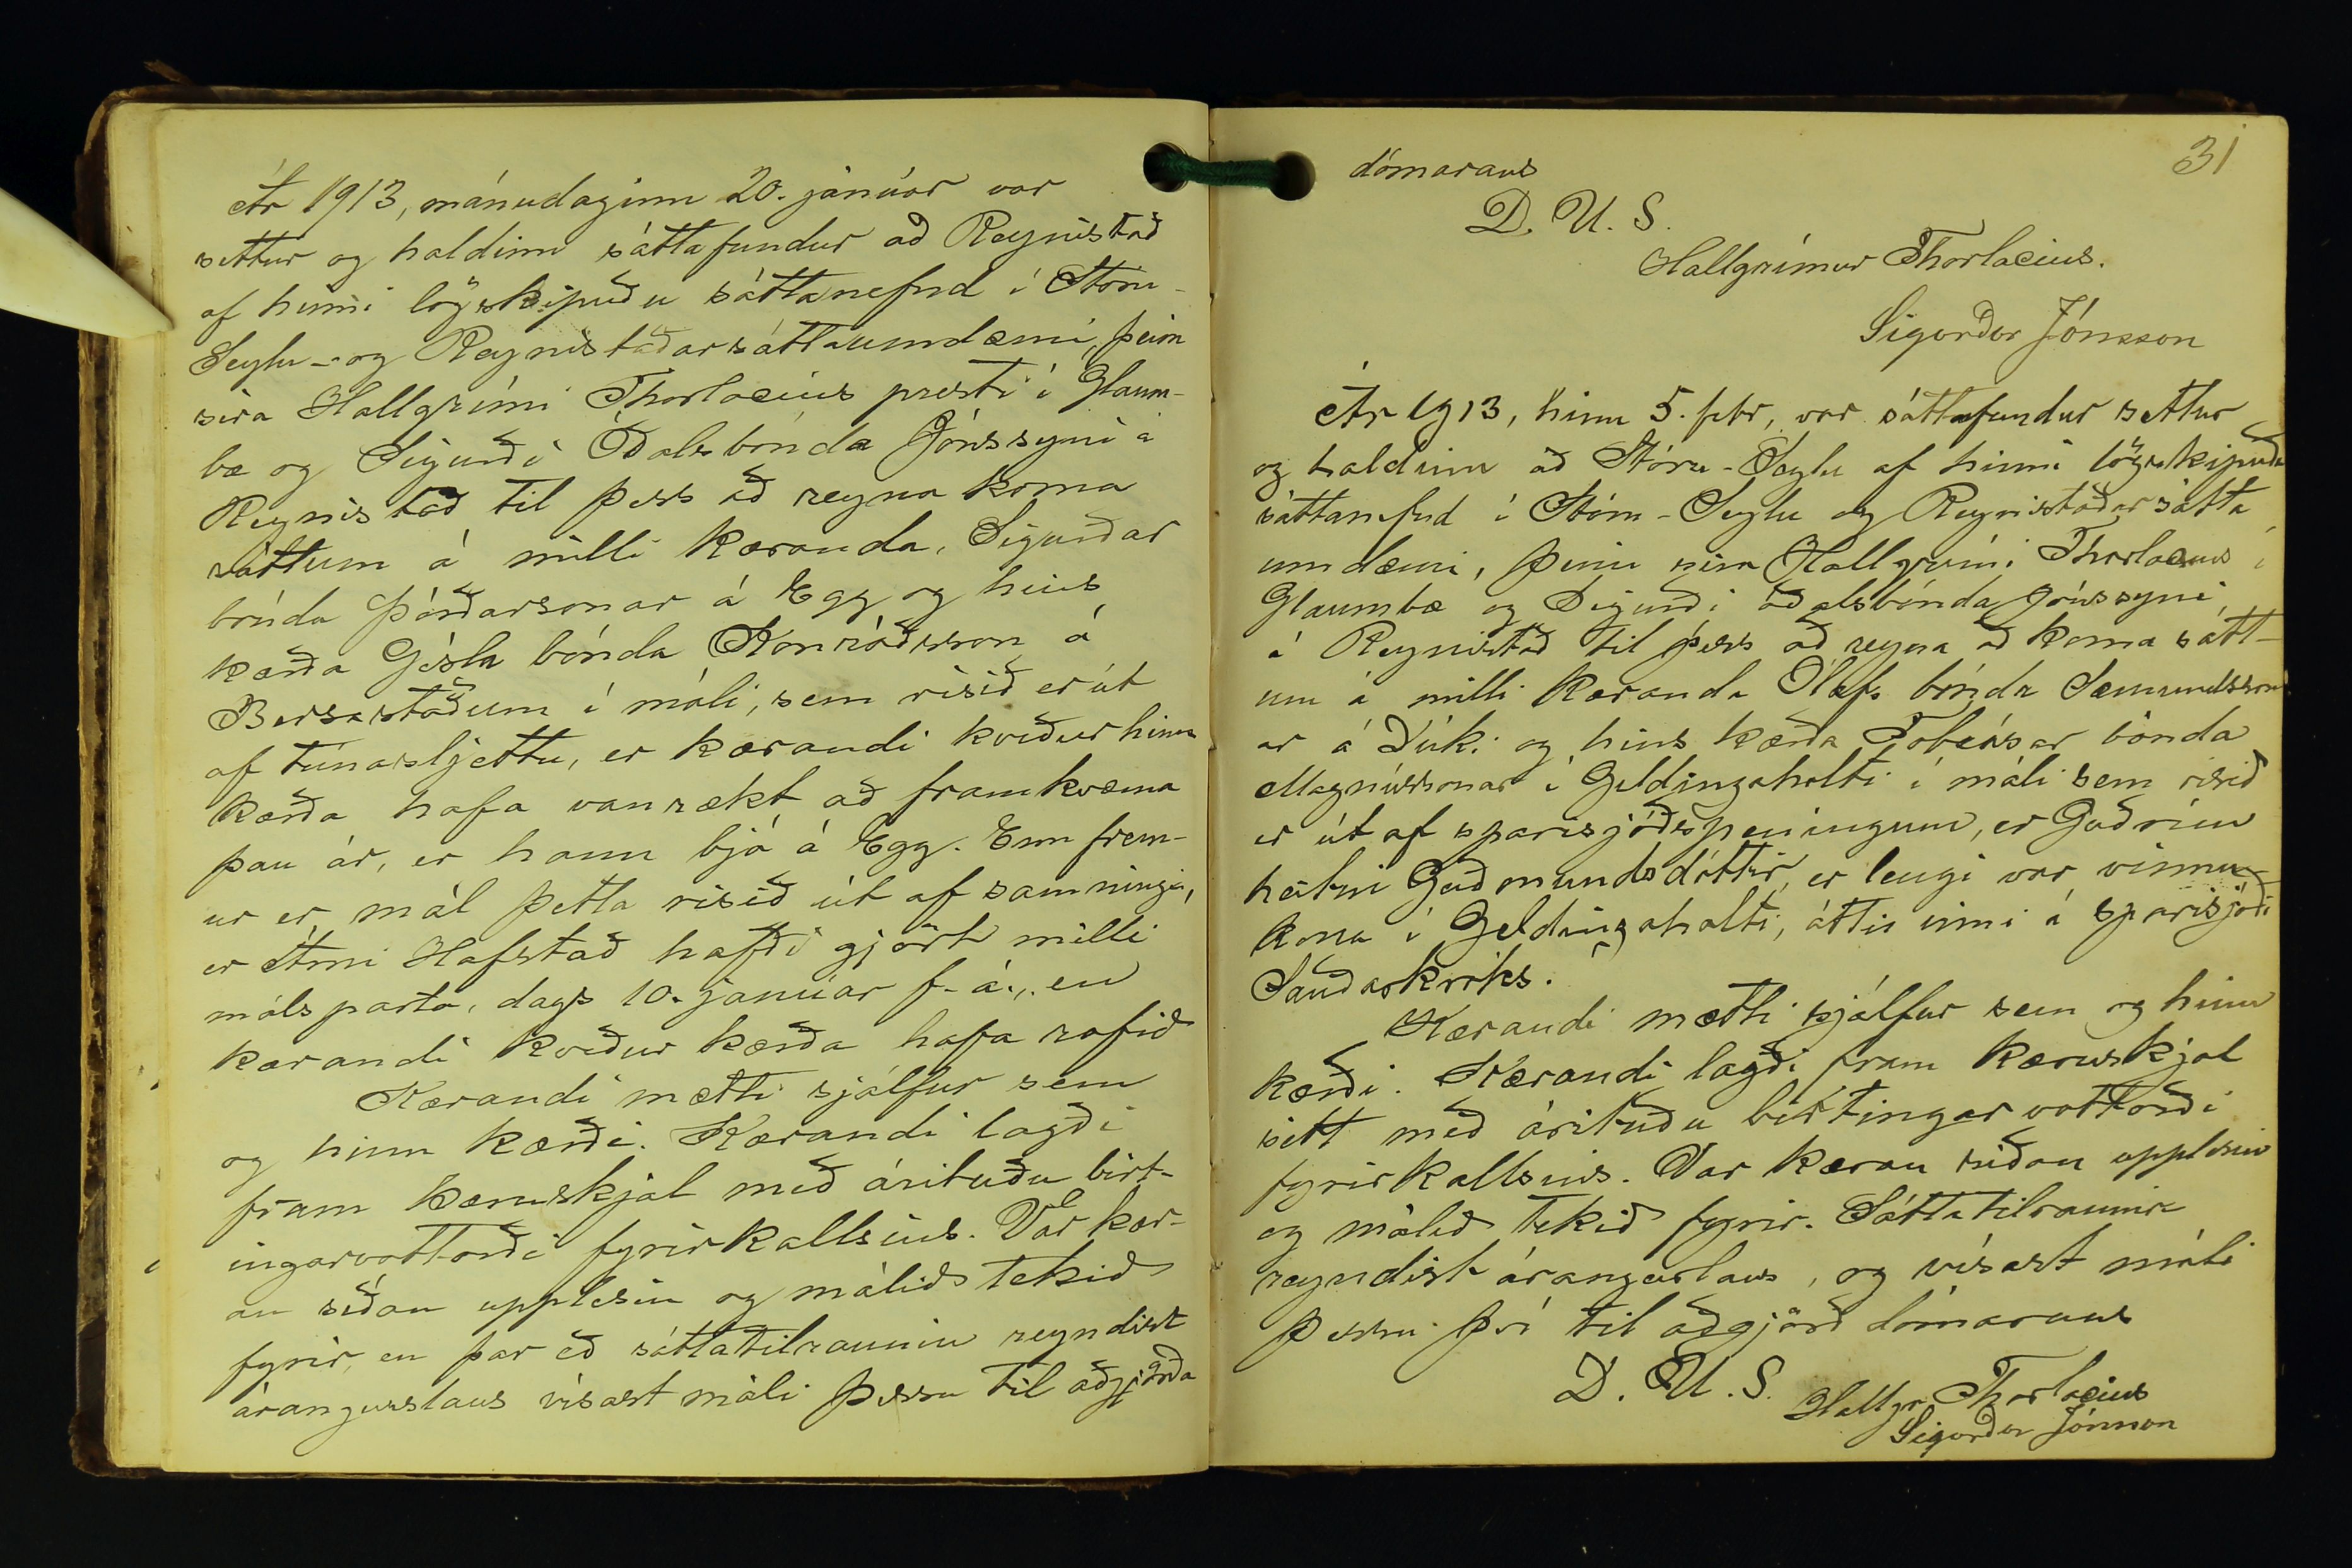 Ár 1913, mánudaginn 20. janúar var
settur og haldinn sáttafundur að Reynistað
af hinni lögskipuðu sáttanefnd í Stóru-
Seylu- og Reynistaðarsáttaumdæmi, þeim
síra Hallgrími Thorlacius presti í Glaum-
bæ og Sigurði Óðalsbónda Jónssyni á
Reynistað til þess að reyna koma
sáttum á milli kæranda, Sigurðar
bónda Þórðarsonar á Egg og hins
kærða Gísla bónda Konráðsson á
Bersastöðum í máli, sem risið er út
af túnasljettu, er kærandi kveður hinn
kærða hafa vanrækt að framkvæma
þau ár, er hann bjó á Egg. Enn frem-
ur er mál þetta risið út af samningi,
er Árni Hafstað hafði gjört milli
málsparta, dags 10. janúar f. á., en
kærandi kveður kærða hafa rofið
Kærandi mætti sjálfur sem
og hinn kærði. Kærandi lagði
fram kæruskjal með árituðu birt-
ingarvottorði fyrirkallsins. Var kær-
an síðan upplesin og málið tekið
fyrir, en þar eð sáttatilraunin reyndist
árangurslaus vísast máli þessu til aðgjörða
31
dómarans
D. U. S.
Hallgrímur Thorlacius.
Sigurður Jónsson
Ár 1913, hinn 5. febr, var sáttafundur settur
og haldinn að Stóru-Seylu af hinni lögskipuðu
sáttanefnd í Stóru-Seylu og Reynistaðarsátta
umdæmi, þeim síra Hallgrími Thorlacius í
Glaumbæ og Sigurði óðalsbónda Jónssyni
á Reynistað til þess að reyna að koma sátt-
um á milli kæranda Ólafs bónda Sæmundsson
ar á Dúki og hins kærða Tobíasar bónda
Magnússonar í Geldingaholti í máli sem risið
er út af sparisjóðspeningum, er Guðrún
heitin Guðmundsdóttir, er lengi var vinnu-
kona í Geldingaholti, átti inni í sparisjóði
Sauðárkróks.
Kærandi mætti sjálfur sem og hinn
kærði. Kærandi lagði fram kæruskjal
sitt með árituðu birtingarvottorði
fyrirkallsins. Var kæran síðan upplesin
og málið tekið fyrir. Sáttatilraunin
reyndist árangurlaus, og vísast máli
þessu því til aðgjörð dómarans
D. U. S.
Hallgr. Thorlacius
Sigurður Jónsson